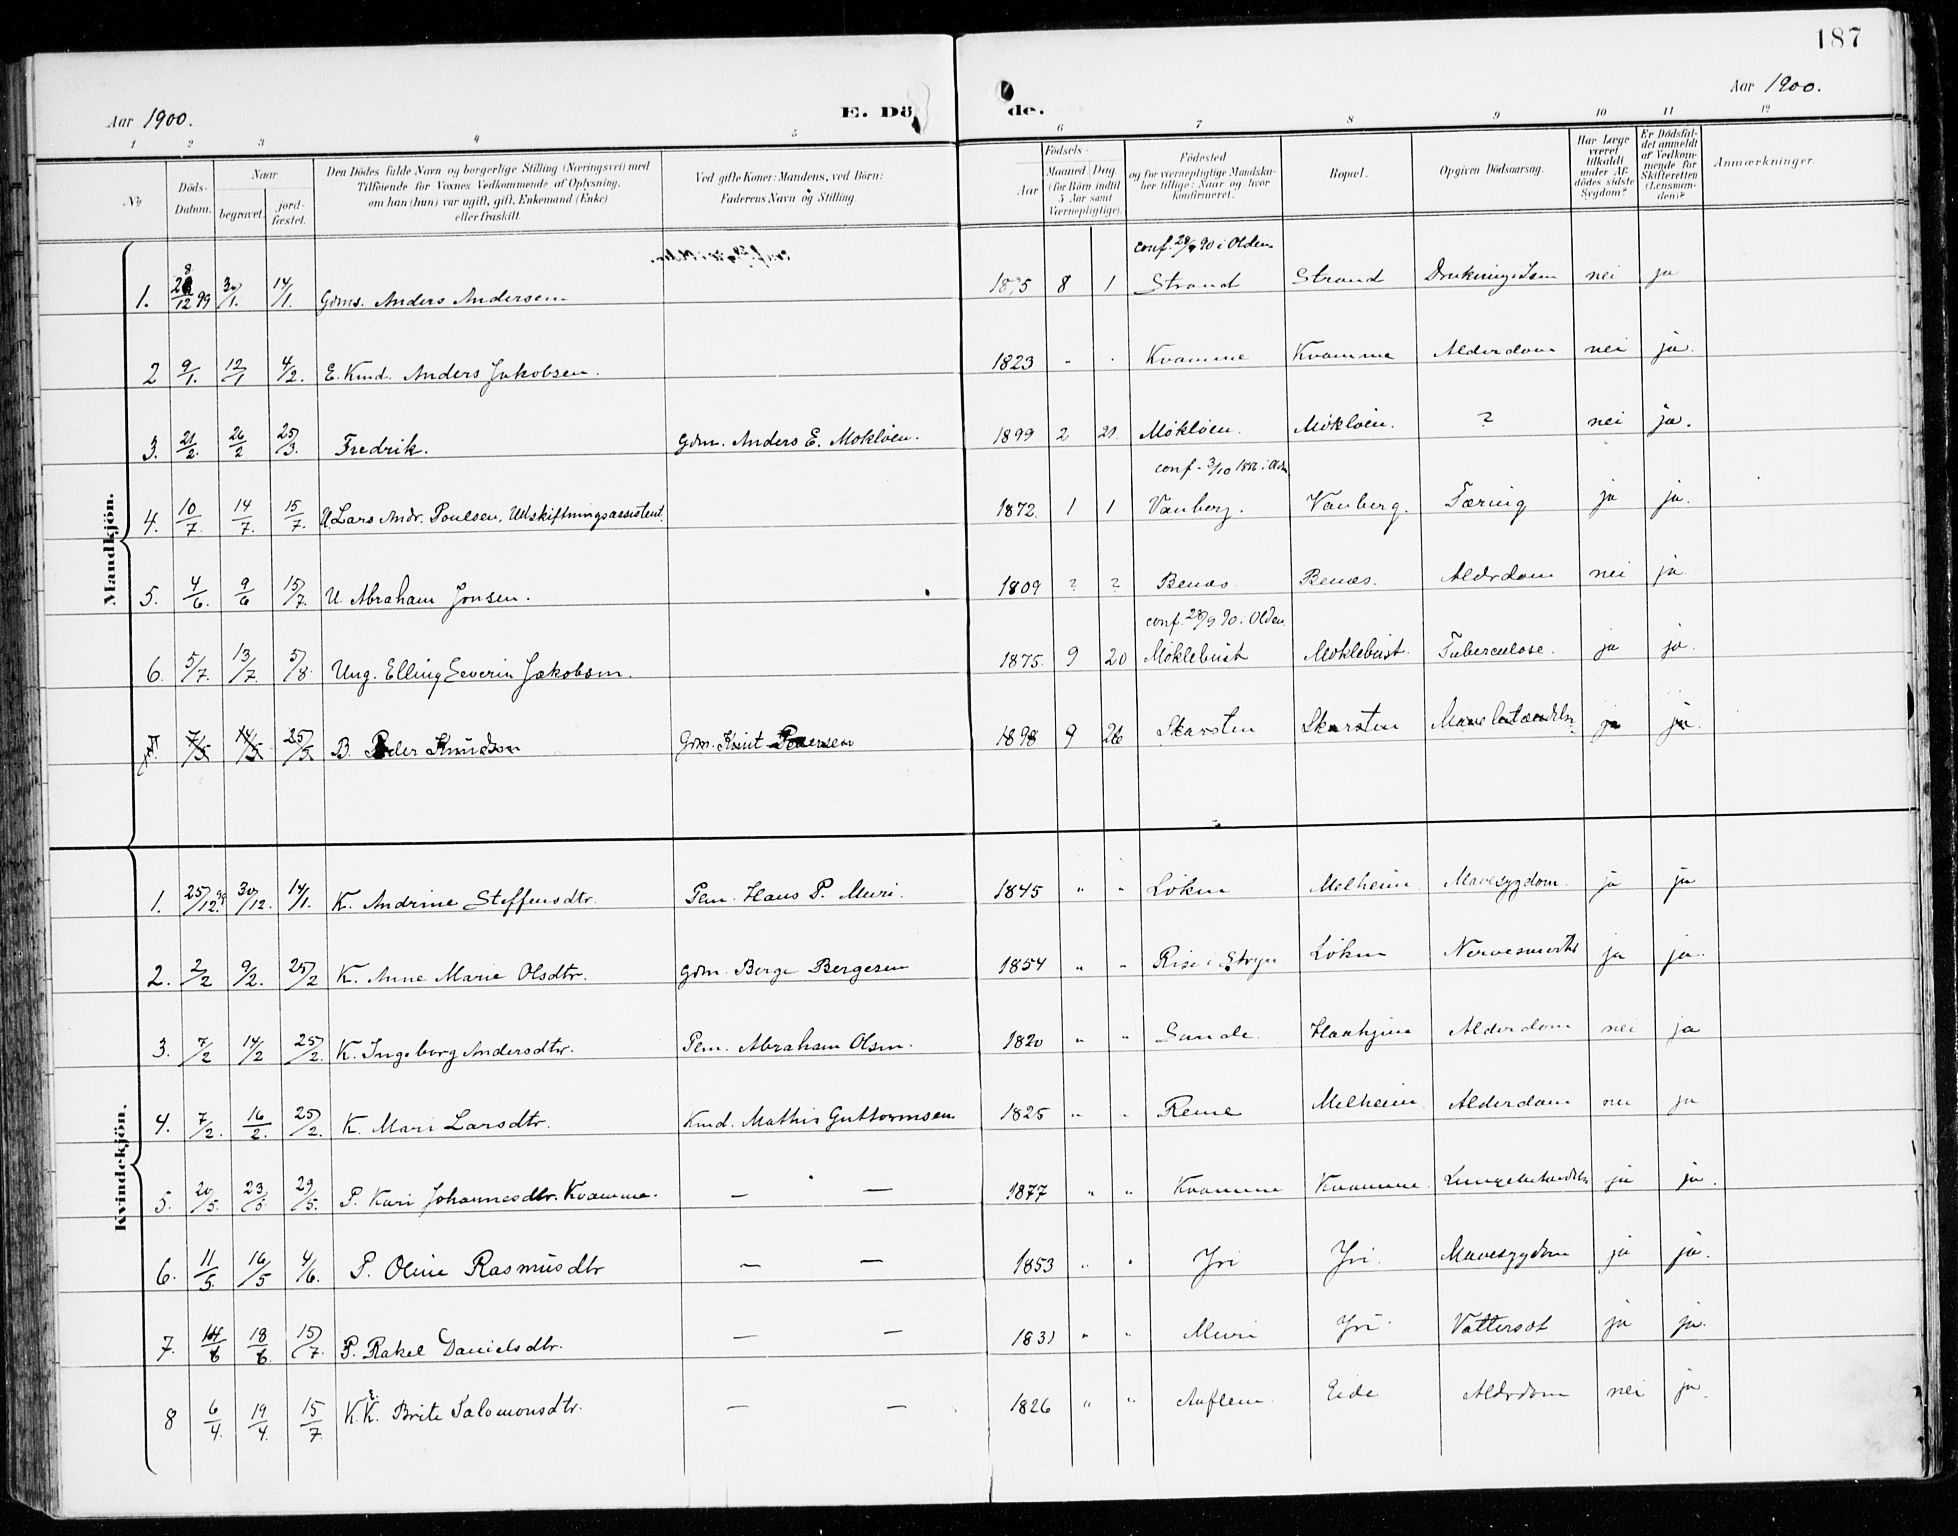 187
Aar 1900.
E. Dö
de.
Aar 1900.
1 2 3 4 5 6 7 8 9 10 11 12
No
Döds-Datum.
Naar
begravet.
jord-fæstet.
Den Dödes fulde Navn og borgerlige Stilling (Næringsvei) med
Tilföiende for Voxnes Vedkommende af Oplysning,
om han (hun) var ugift, gift, Enkemand (Enke)
eller fraskilt.
Ved gifte Koner: Mandens, ved Börn:
Faderens Navn og Stilling.
Födsels-
Aar
Maaned Dag
(for Börn indtil
5 Aar samt
Værnepligtige).
Födested
og for værnepligtige Mandska-
ber tillige: Naar og hvor
konfirmeret.
Bopæl.
Opgiven Dödsaarsag.
Har Læge
været
tilkaldt
under Af-
dödes sidste
Sygdom?
Er Dödsfal-
det anmeldt
af Vedkom-
mende for
Skifteretten
(Lensman-
den)?
Anmærkninger.
Mandkjön.
conf. 28/9 90 i Olden
1. 28/12 99 3/1. 14/1. Gdms. Anders Andersen 1875 8 1 Strand Strand nei ja
2 9/1. 12/1 4/2. E. Kmd. Anders Jakobsen. 1823 " " Kvamme Kvamme Alderdom nei ja.
3. 21/2. 26/2 25/3. Fredrik. Gdm. Anders E. Mökløen. 1899 2 21. Mökløen. Mökløen. ? nei ja.
conf. 3/10 i Olden
4. 10/7. 14/7. 15/7. U. Lars Andr. Poulsen, Udskiftningsassistent. 1872. 1 1 Vanberg. Vanberg. Tæring ja ja.
5. 4/6. 9/6 15/7. U. Abraham Jonsen. 1809 ? ? Benæs. Benæs. Alderdom nei ja
conf. 28/9 90 i Olden.
6. 5/7. 13/7. 5/8. Ung. Elling Severin Jakobsen. 1875. 9 20 Möklebust Möklebust. Tuberculose. ja ja.
7. 7/5 14/5 25/5 B. Peder Knudsen Gdm. Knut Pedersen 1898 9 26 Skarsten Skarsten ja ja.
Kvindekjön.
1. 25/12.99 30/12. 14/1. K. Andrine Steffensdtr. Pem. Hans P. Muri. 1845 " " Løken Melheim. Mavesygdom. ja ja
2. 2/2 9/2. 25/2 K. Anne Marie Olsdtr. Gdm. Berge Bergesen 1854 " " Rise i Stryn Løken ja ja.
3. 7/2 14/2 25/2. K. Ingeborg Andersdtr. Pem. Abraham Olsen. 1820 " " Sunde. Haahjem Alderdom nei ja
4. 7/2. 16/2. 25/2. K. Mari Larsdtr. Kmd. Mathis Guttormsen 1825 " " Reme Melheim. Alderdom nei ja
5. 20/5. 23/5. 29/5. P. Kari Johannesdtr. Kvamme. — — 1877 " " Kvamme Kvamme. ja ja.
6. 11/5. 16/5 4/6. P. Oline Rasmusdtr — — 1853 " " Yri Yri. Mavesygdom ja ja.
7. 14/6 18/6. 15/7 P. Rakel Danielsdtr. — — 1831 " " Muri Yri Vattersot ja ja.
8 6/4. 19/4. 15/7 K.E. Brite Salomonsdtr. — — 1826 " " Auflem. Eide Alderdom nei ja.